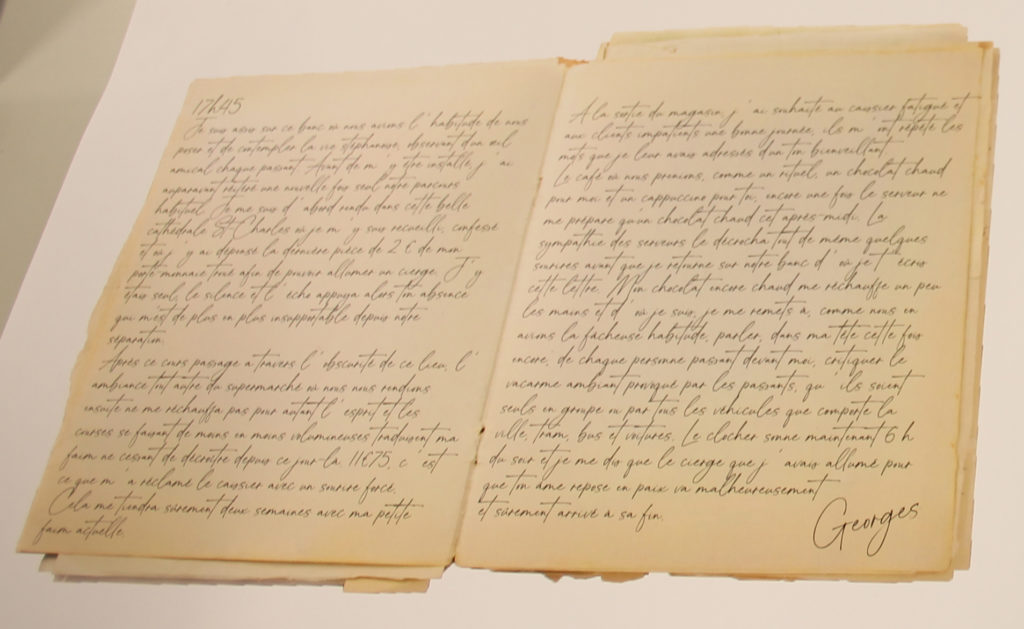 17h45
Je suis assis sur ce banc où nous avions l'habitude de nous
poser et de contempler la vie stéphanoise, observant d'un œil
amical chaque passant. Avant de m'y être installé, j'ai
auparavant réitéré une nouvelle fois seul notre parcours
habituel. Je me suis d'abord rendu dans cette belle
cathédrale St-Charles où je m'y suis recueilli, confessé
et où j'y ai déposé la dernière pièce de 2 € de mon
porte monnaie troué afin de pouvoir allumer un cierge. J'y
étais seul, le silence et l'écho appuya alors ton absence
qui m'est de plus en plus insupportable depuis notre
séparation.
Après ce cours passage à travers l'obscurité de ce lieu, l'
ambiance tout autre du supermarché où nous nous rendions
ensuite ne me réchauffa pas pour autant l'esprit et les
courses se faisant de moins en moins volumineuses traduisent ma
faim ne cessant de décroître depuis ce jour-là. 11€75, c'est
ce que m'a réclamé le caissier avec un sourire forcé.
Cela me tiendra sûrement deux semaines avec ma petite
faim actuelle.
A la sortie du magasin, j'ai souhaité au caissier fatigué et
aux clients impatients une bonne journée, ils m'ont répété les
mots que je leur avais adressés d'un ton bienveillant.
Le café où nous prenions, comme un rituel, un chocolat chaud
pour moi et un cappuccino pour toi, encore une fois le serveur ne
me prépare qu'un chocolat chaud cet après-midi. La
sympathie des serveurs le décrocha tout de même quelques
sourires avant que je retourne sur notre banc d'où je t'écris
cette lettre. Mon chocolat encore chaud me réchauffe un peu
les mains et d'où je suis, je me remets à, comme nous en
avions la fâcheuse habitude, parler, dans ma tête cette fois
encore, de chaque personne passant devant moi, critiquer le
vacarme ambiant provoqué par les passants, qu'ils soient
seuls en groupe ou par tous les véhicules que comporte la
ville, tram, bus et voitures. Le clocher sonne maintenant 6 h
du soir et je me dis que le cierge que j'avais allumé pour
que ton âme repose en paix va malheureusement
et sûrement arrivé à sa fin.
Georges